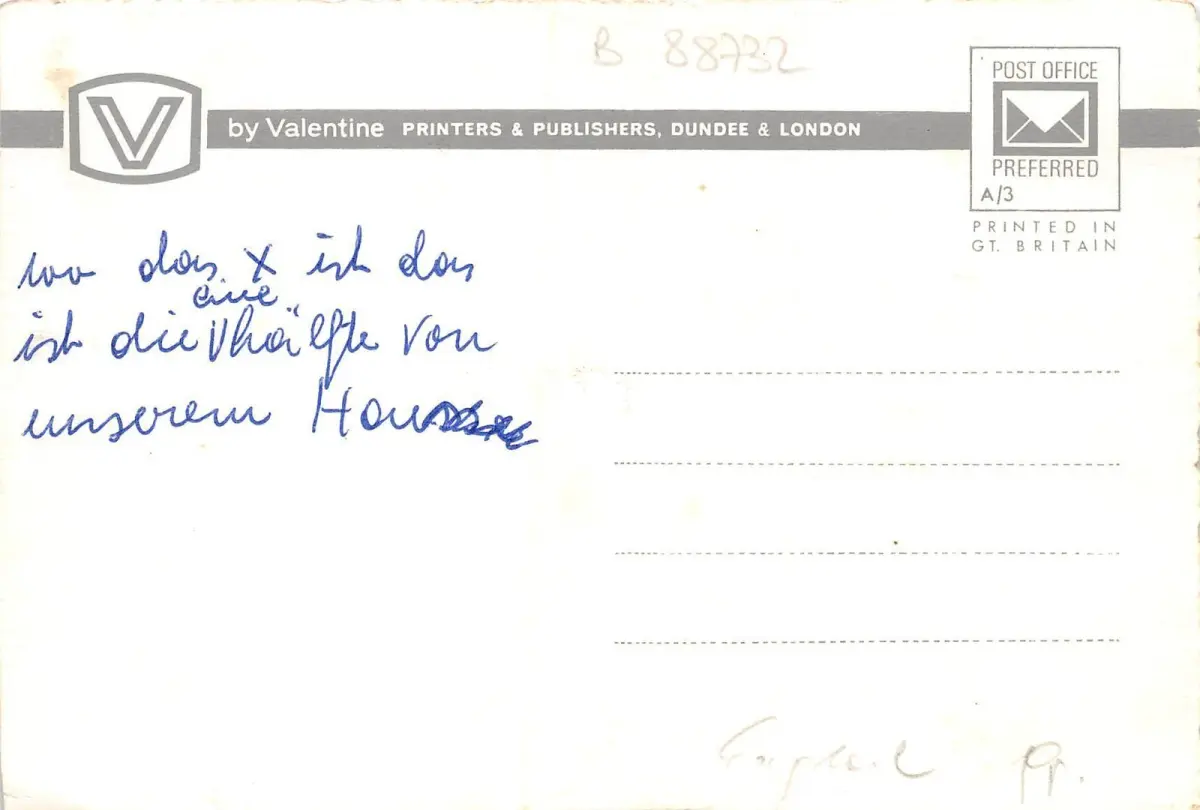 B 88732
V by Valentine PRINTERS & PUBLISHERS, DUNDEE & LONDON
POST OFFICE
PREFERRED
A/3
PRINTED IN
GT. BRITAIN
wo das x ist das
eine
ist die hälfte von
unserem Haus